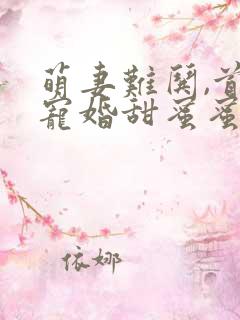 萌妻難鬥,首
寵婚甜蜜蜜
依娜